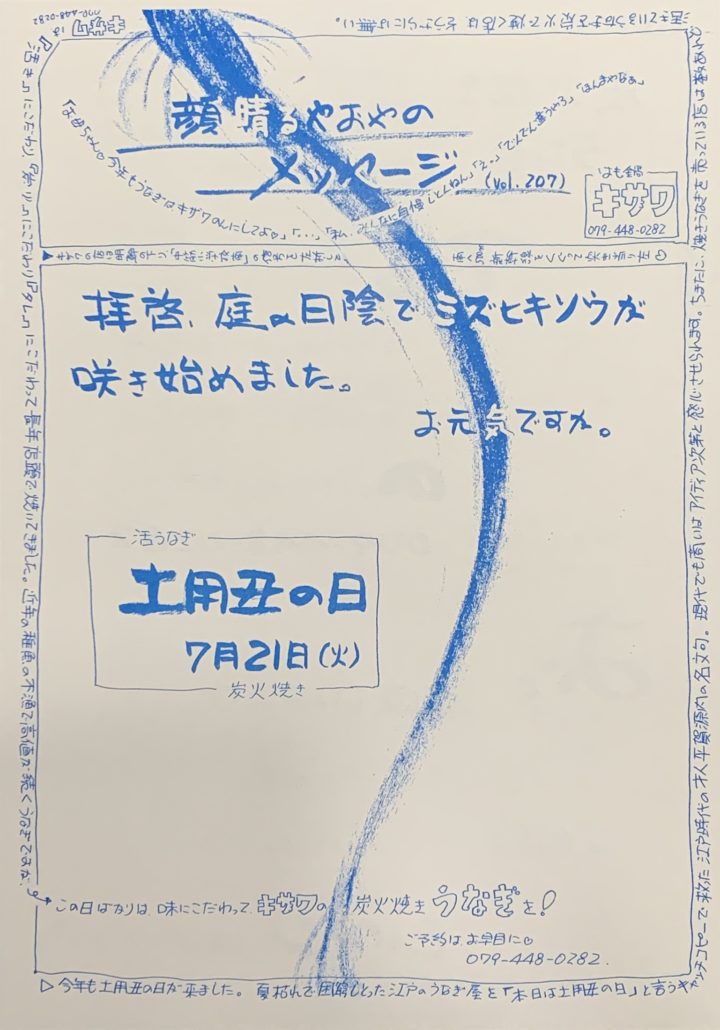 顔晴るやおやの
メッセージ
(Vol. 207)
はも鍋
キサワ
079-448-0282
拝啓、庭の日陰でミズヒキソウが
咲き始めました。
お元気ですか。
活うなぎ
土用丑の日
7月21日(火)
炭火焼き
▷今年も土用丑の日が来ました。夏枯れで困窮しとった江戸のうなぎ屋を「本日は土用丑の日」と言うキャッチコピーで救った江戸時代の才人平賀源内の名文句。現代でも商いはアイディア次第と感心させられます。ちまたに、焼きうなぎを売っている店は数あれど
活きているうなぎを炭火で焼く店は そうざらには無い。
キサワは
079-448-0282
『活き』にこだわり『炭火』にこだわり『タレ』にこだわって長年店頭で焼いてきました。近年の稚魚の不漁で高値が続くうなぎですが、
この日ばかりは、味にこだわって、キサワの炭火焼きうなぎを!
ご予約は、お早目に♡
079-448-0282.
「お母ちゃん♡今年もうなぎはキサワのんにしてよ♡」「...」「私、みんなに自慢しとんねん」「え。」「ぜんぜん違うやろ」「ほんまやなぁ」